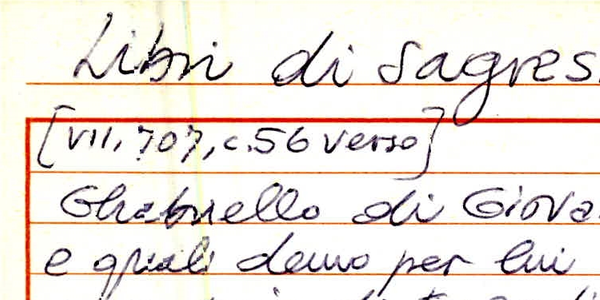 Libri di Sagres
[VII, 707, c. 56 verso]
Ghabriello di Giova
e quali demo per lui